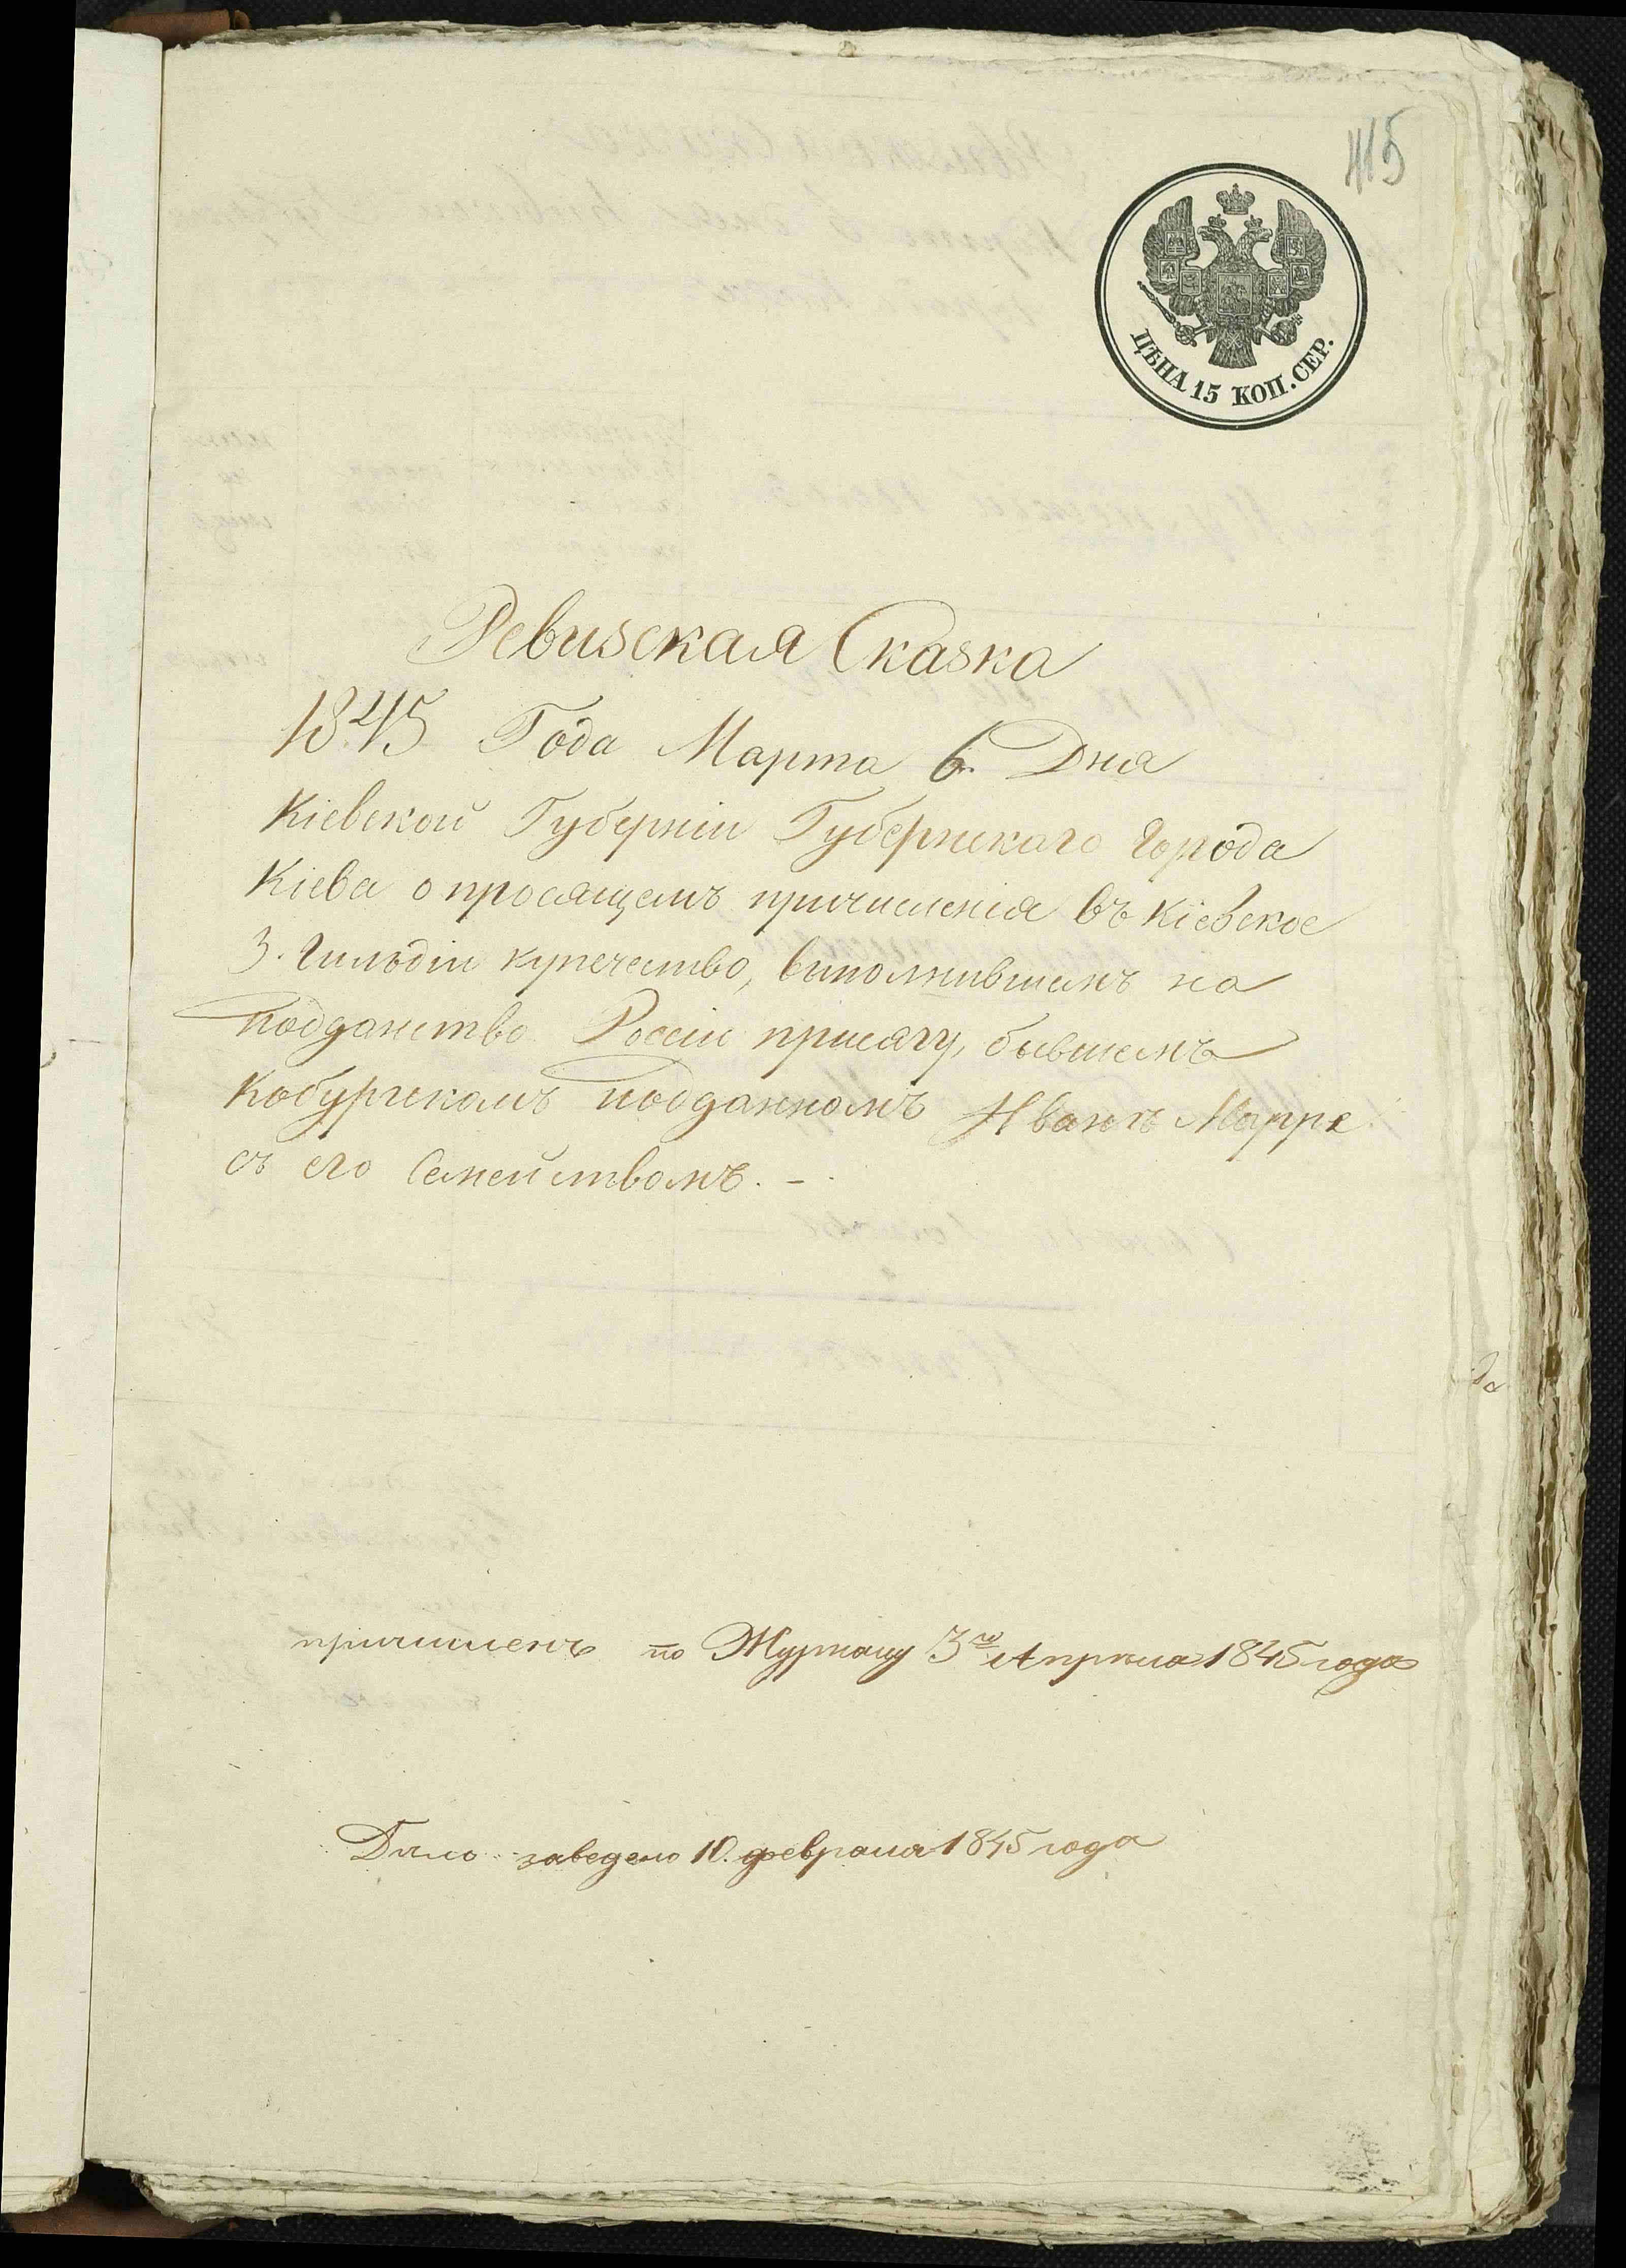 415
ЦѢНА 15 КОП. СЕР.
Ревизская Сказка
1845 Года Марта 6. Дня
Кіевской Губерніи Губернскаго Города
Кіева о просящемъ причисленія въ Кіевское
3. Гильдіи купечество, выполнившемъ на
подданство Россіи присягу, бывшемъ
Кобургскомъ подданномъ Иванѣ Марре
съ его Семействомъ. -
причисленъ по Журналу 3го Апрѣля 1845 года
Дѣло заведено 10. февраля 1845 года